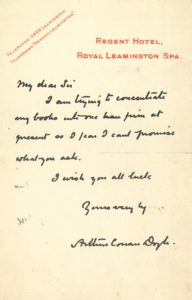 TELEPHONE 0926 LEAMINGTON.
TELEGRAMS "REGENT" LEAMINGTON.
REGENT HOTEL,
ROYAL LEAMINGTON SPA.
My dear Sir
I am trying to concentrate
my books into one trans firm at
present so I fear I cant promise
what you ask.
I wish you all luck
Yours very ly
Arthur Conan Doyle.